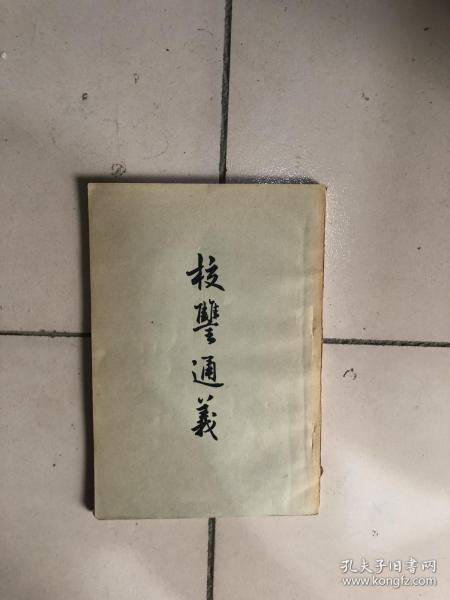 校讐通義
孔夫子旧书网
www.kongfz.com